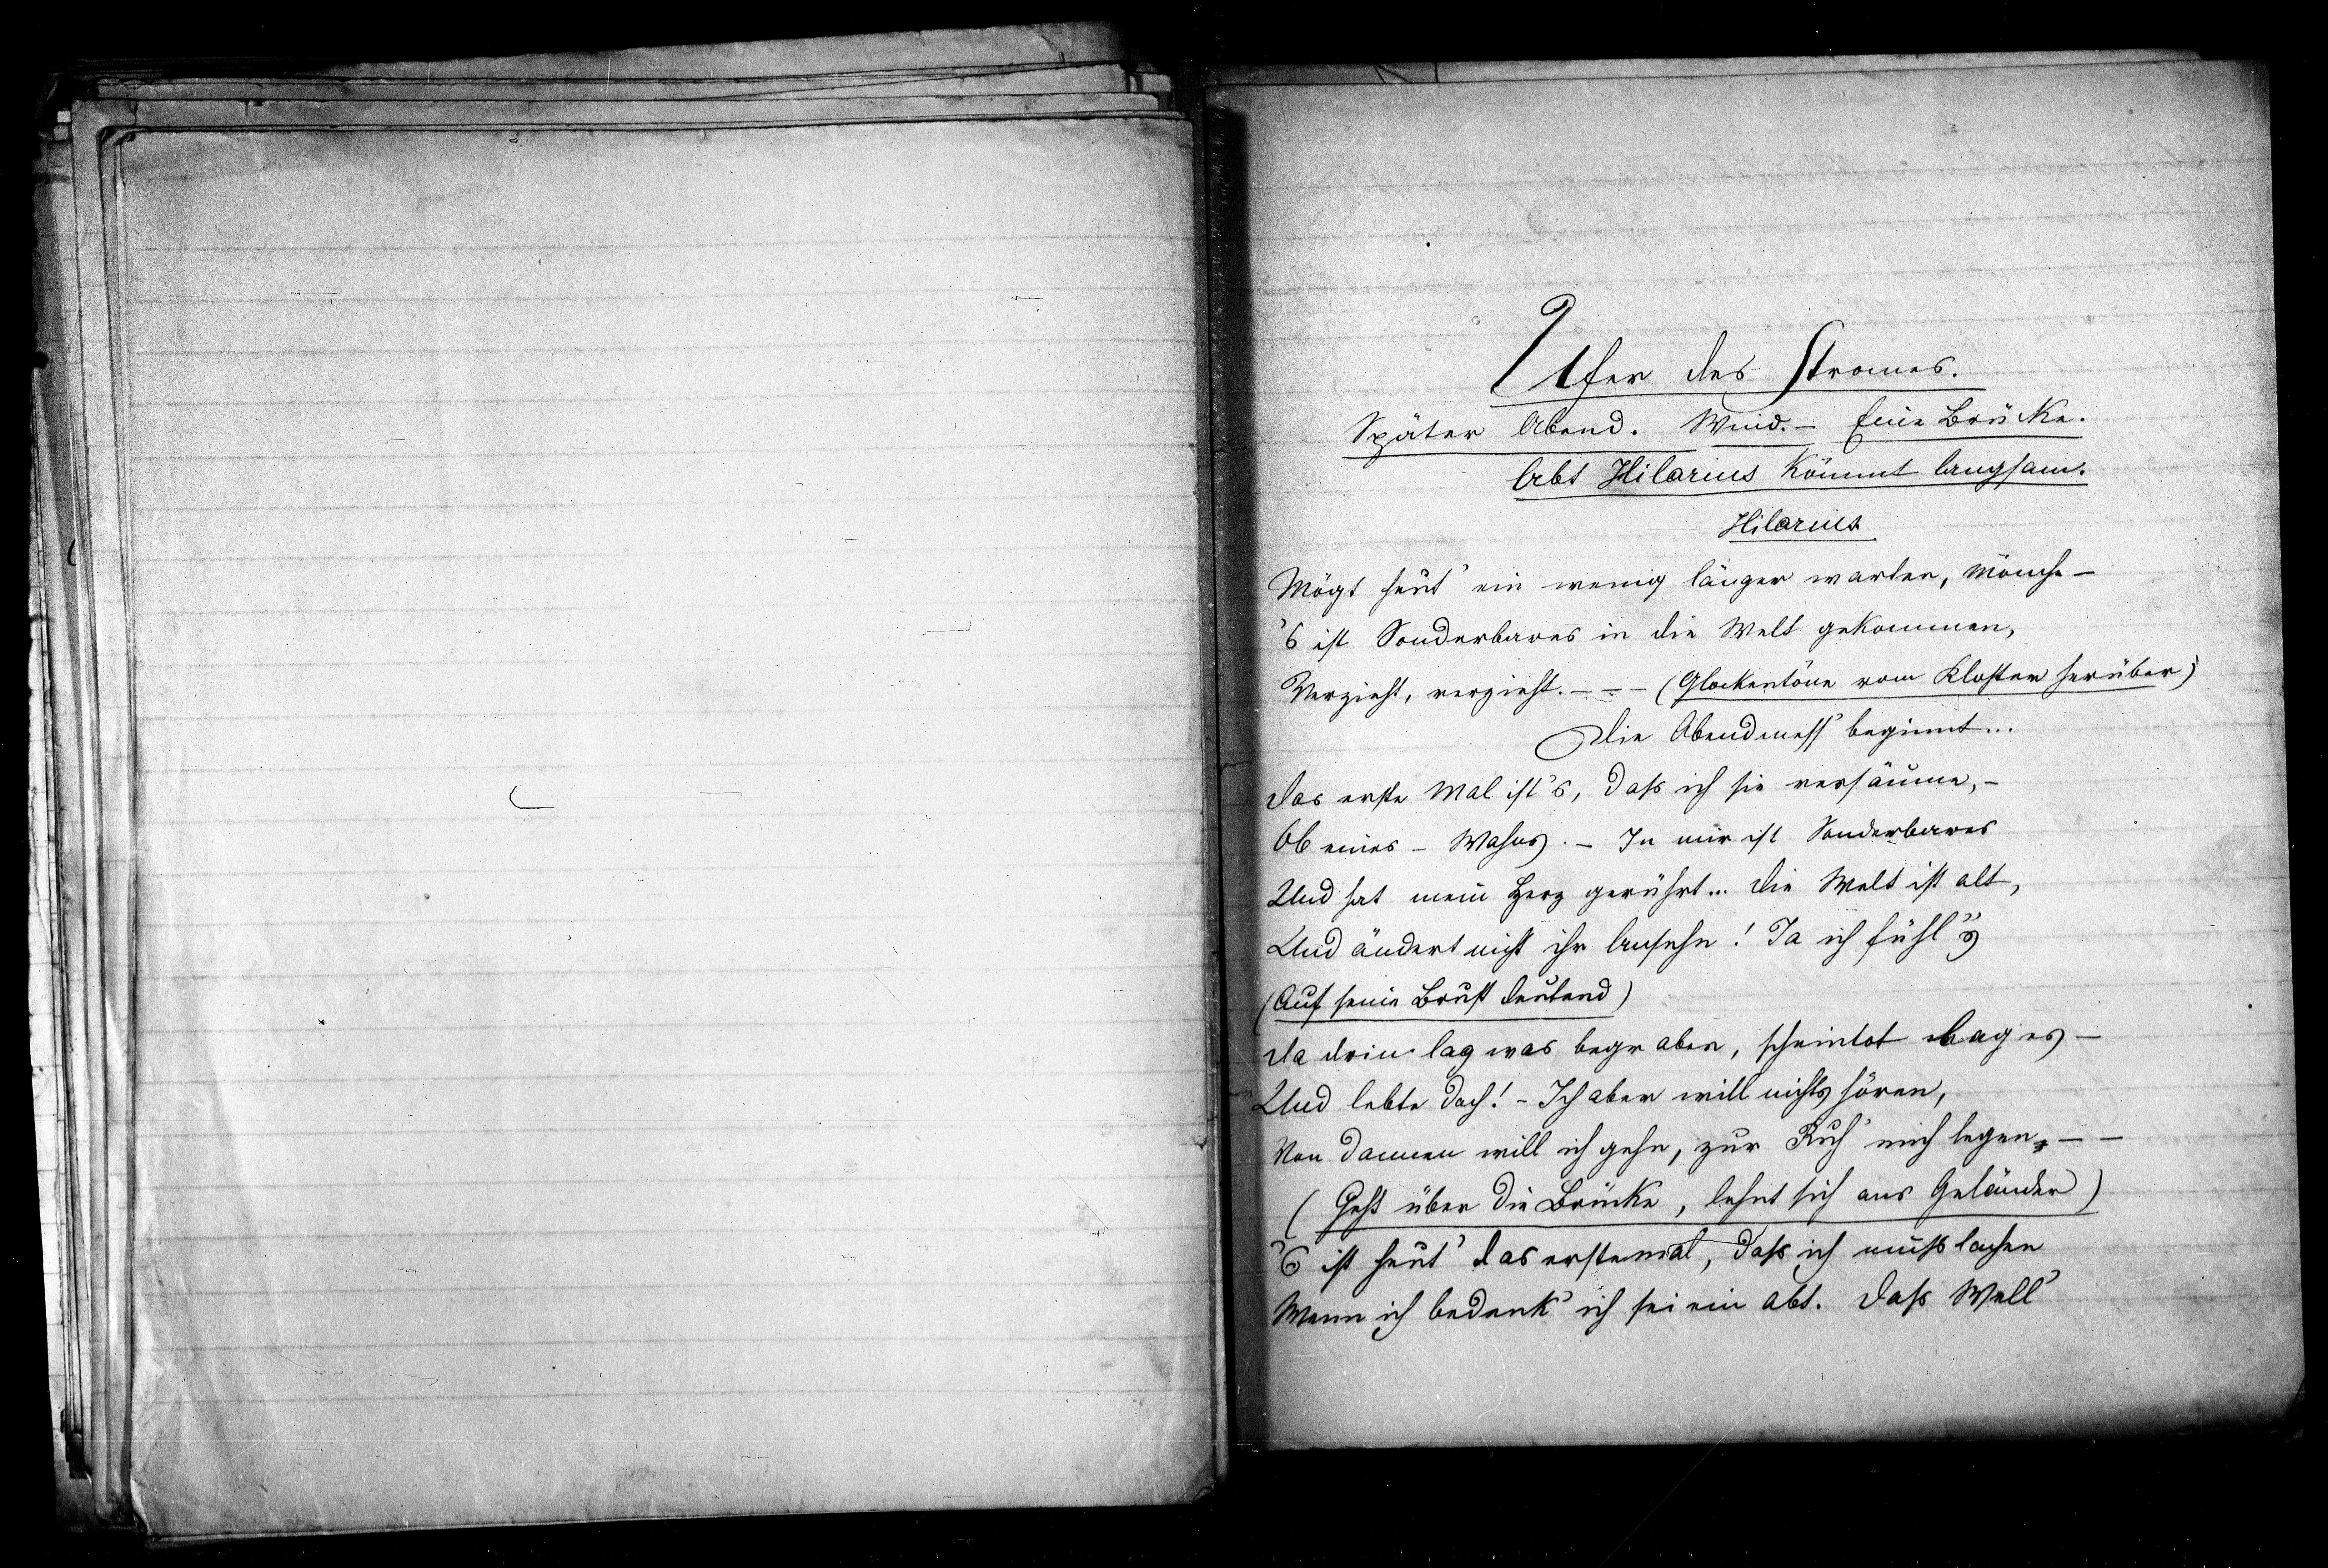 Ufer des Stromes.
Später Abend. Wind. – Eine Brücke.
Abt Hilarius kömmt langsam.
Hilarius
Mögt heut' ein wenig länger warten, Mönche –
's ist Sonderbares in die Welt gekommen,
Verzieht, verzieht. – – – (Glockentöne vom Kloster herüber)
Die Abendmess' beginnt...
Das erste Mal ist's, daß ich sie versäume, –
Ob eines – Wahns. – In mir ist Sonderbares
Und hat mein Herz gerührt... Die Welt ist alt,
Und ändert nicht ihr Ansehn! Ja ich fühl's
(Auf seine Brust deutend)
Da drin lag was begraben, scheintot lag es –
Und lebte doch! – Ich aber will nichts hören,
Von dannen will ich gehn, zur Ruh' mich legen, – –
(Geht über die Brücke, lehnt sich ans Geländer)
's ist heut' das erstemal, daß ich muß lachen
Wenn ich bedenk' ich sei ein Abt. Daß Well'